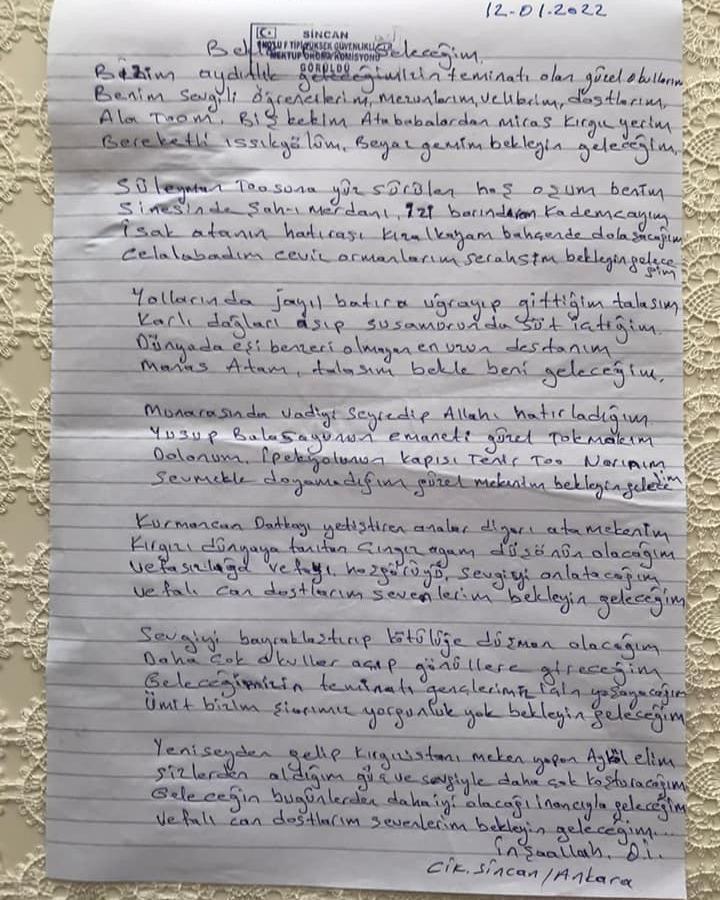 12.01.2022
SİNCAN
GÖRÜLDÜ
Bekleyin Geleceğim.
Bizim aydınlık geleceğimizin teminatı olan güzel okullarım
Benim sevgili öğrencilerim, mezunlarım, velilerim, dostlarım,
Ala Toom, Bişkekim Atababalardan miras Kırgız yerim
Bereketli ıssıkgölüm, Beyaz gemim bekleyin geleceğim.
Süleyman Toosuna yüz sürülen hoş oşum benim
Sinesinde Şah-ı Merdanı, izi barındıran Kademcayım
İsak atanın hatırası Kızılkayam bahçende dolaşacağım
Celalabadım ceviz ormanlarım serahsım bekleyin geleceğim
Yollarında jayıl batıra uğrayıp gittiğim talasım
Karlı dağları aşıp susamırunda süt içtiğim
Dünyada eşi benzeri olmayan en uzun destanım
Manas Atam, talasım bekle beni geleceğim.
Munarasında vadiyi seyredip Allahı hatırladığım
Yusup Balasagunun emaneti güzel Tokmakım
Dolonum, İpekyolunun kapısı Tenir Too Narınım
Sevmekle doyamadığım güzel mekenim bekleyin geleceğim
Kurmancan Datkayı yetiştiren analar diyarı ata mekenim
Kırgızı dünyaya tanıtan Cıngız agam düşönün olacağım
Vefasızlığa vefayı, hoşgörüyü, sevgiyi anlatacağım
Vefalı can dostlarım sevenlerim bekleyin geleceğim
Sevgiyi bayraklaştırıp kötülüğe düşman olacağım
Daha çok okullar açıp gönüllere gireceğim
Geleceğimizin teminatı gençlerimiz için yaşayacağım
Ümit bizim şiarımız yorgunluk yok bekleyin geleceğim
Yeniseyden gelip Kırgızistanı meken yapan Ayköl elim
Sizlerden aldığım güç ve sevgiyle daha çok koşturacağım
Geleceğin bugünlerden daha iyi olacağı inancıyla geleceğim
Vefalı can dostlarım sevenlerim bekleyin geleceğim...
İnşaallah. O.İ.
CİK. Sincan/Ankara